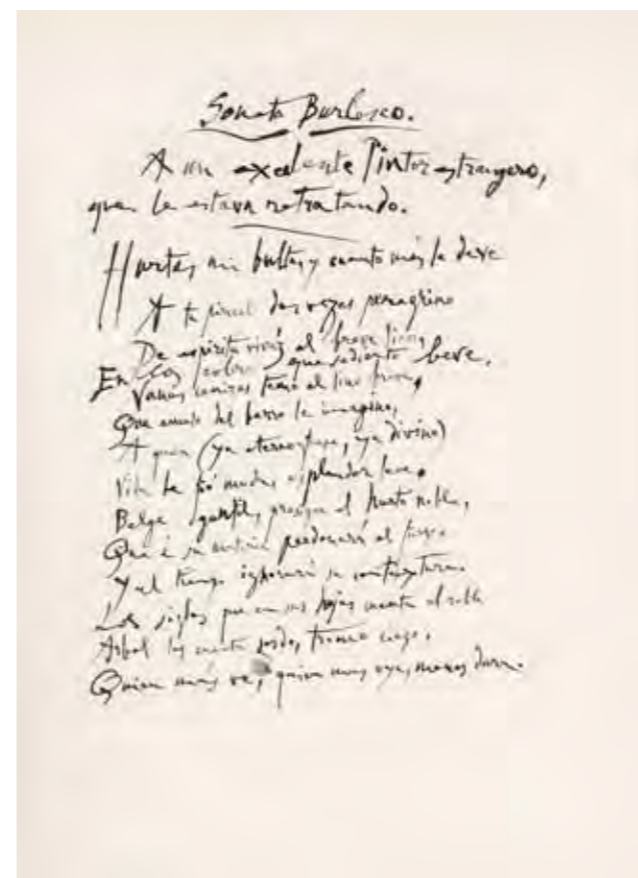 Soneto Burlesco.
A un exelente Pintor estrangero,
que le estava retratando.
Hurtas mi bulto, y cuanto más le deve
A tu pincel dos vezes peregrino
De espiritu vivaz el breve lino
En los colores que sediento beve,
Vanas cenizas temo al lino breve,
Que emulo del barro le imagino,
A quien (ya etereo fuese, ya divino)
Vida le fió muda esplendor leve.
Belga gentil, prosigue al hurto noble,
Que á su materia perdonará el fuego
Y el tiempo ignorará su contextura.
Los siglos que en sus hojas cuenta el roble
Arbol los cuenta sordo, tronco ciego,
Quien más ve, quien mas oye, menos dura.